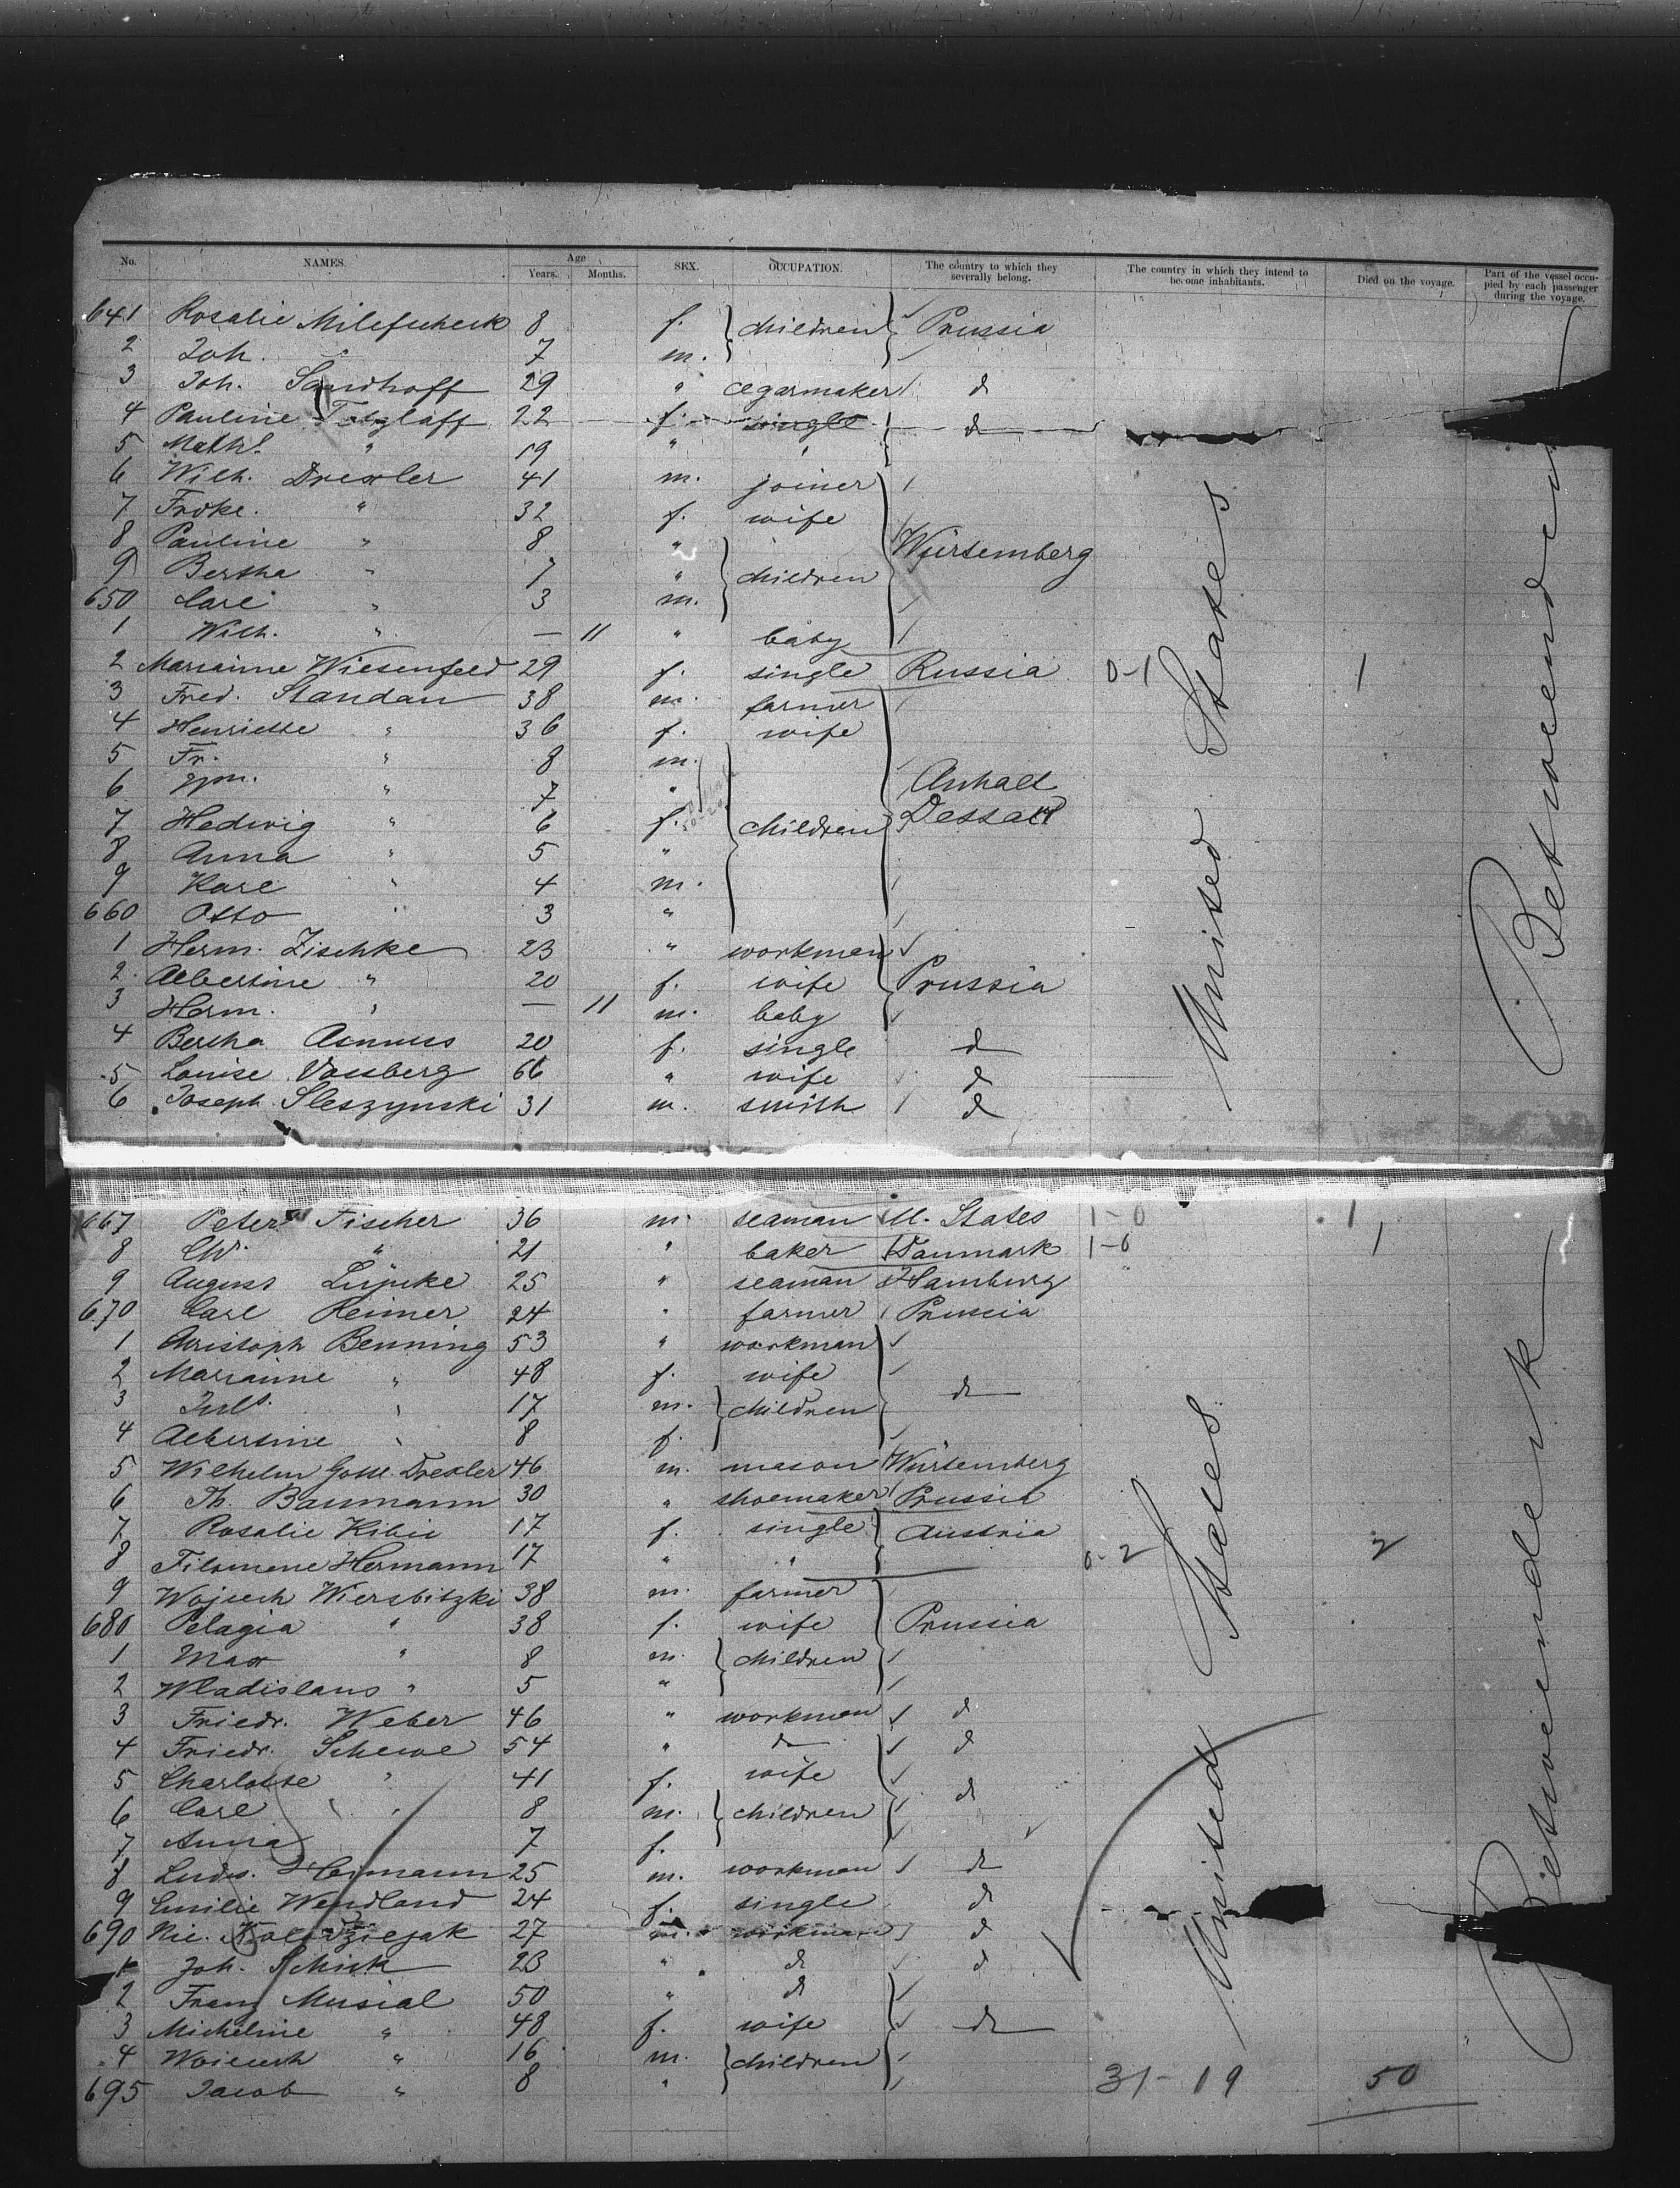 No. NAMES. Age Years. Months. SEX. OCCUPATION. The country to which they severally belong. The country in which they intend to become inhabitants. Died on the voyage. Part of the vessel occupied by each passenger during the voyage.
641 Rosalie 8 f. children Prussia
2 Joh. " 7 m.
3 Joh. Sandhoff 29 " cegarmaker d
4 Pauline Tetzlaff 22 f. single d
5 Math. " 19 " "
6 Wilh. Drexler 41 m. joiner
7 Frdke. " 32 f. wife
8 Pauline " 8 " Würtemberg
9 Bertha " 7 " children
650 Carl " 3 m.
1 Wilh. " — 11 " baby
2 Marianne Wiesenfeld 29 f. single Russia 0-1 1
3 Fred. Standau 38 m. farmer
4 Henriette " 36 f. wife
5 Fr. " 8 m.
6 " 7 " Anhalt
7 Hedwig " 6 f. children Dessau
8 Anna " 5 "
9 Karl " 4 m.
660 Otto " 3 "
1 Herm. Zischke 23 " workman
2 Albertine " 20 f. wife Prussia
3 Herm. " — 11 m. baby
4 Bertha Asmuss 20 f. single d
5 Louise Vossberg 66 " wife d
6 Joseph Sleszynski 31 m. smith d
United States
Betweendeck
667 Peter Fischer 36 m. seaman U. States 1-0 1
8 Chr. " 21 " baker Danmark 1-0 1
9 August Lüpcke 25 " seaman Hamburg
670 Carl Reimer 24 " farmer Prussia
1 Christoph Benning 53 " workman
2 Marianne " 48 f. wife
3 Juls. " 17 m. children d
4 Albertine " 8 f.
5 Wilhelm Gottl. Drexler 46 m. mason Würtemberg
6 Th. Baumann 30 " shoemaker Prussia
7 Rosalie Kibic 17 f. single Austria
8 Filomene Hermann 17 " " 0-2 2
9 Wojsech Wiersbitzki 38 m. farmer
680 Pelagia " 38 f. wife Prussia
1 Max " 8 m. children
2 Wladislaus " 5 "
3 Friedr. Weber 46 " workman d
4 Friedr. Schewe 54 " d d
5 Charlotte " 41 f. wife
6 Carl " 8 m. children d
7 Anna 7 f.
8 Ludw. Hermann 25 m. workman d
9 Emilie Wendland 24 f. single d
690 Nic. 27 m. workman d
1 Joh. Schick 23 " d d
2 Franz Musial 50 " d
3 Micheline " 48 f. wife d
4 Woicech " 16 m. children
695 Jacob " 8 " 31-19 50
United States
Betweendenk